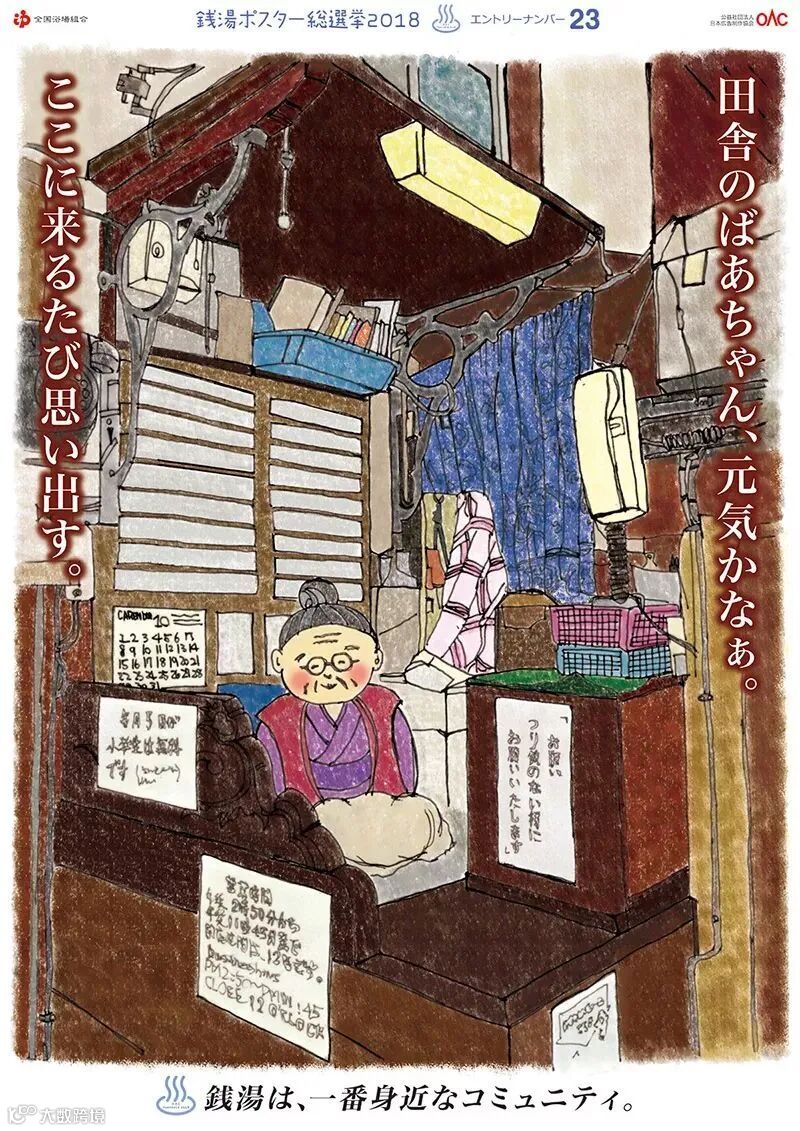 全国浴場組合
銭湯ポスター総選挙2018
エントリーナンバー 23
公益社団法人
日本広告制作協会
OAC
田舎のばあちゃん、元気かなぁ。
ここに来るたび思い出す。
10
1 2 3 4 5 6 7
8 9 10 11 12 13 14
15 16 17 18 19 20 21
22 23 24 25 26 27 28
29 30 31
小学生は無料
です
「お願い
つり銭のない様に
お願いいたします」
営業時間
午後11時45分まで
CLOSE 12 O'CLOCK
銭湯は、一番身近なコミュニティ。
大数跨境